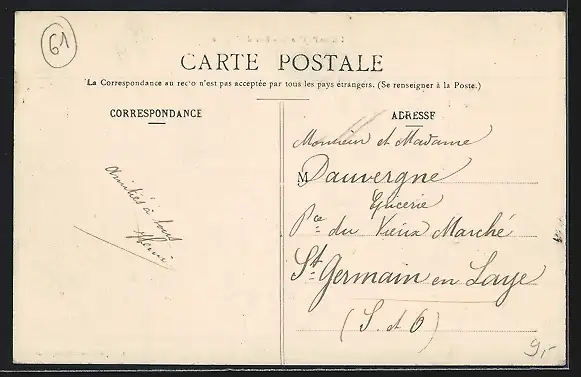 61
CARTE POSTALE
La Correspondance au recto n'est pas acceptée par tous les pays étrangers. (Se renseigner à la Poste.)
CORRESPONDANCE
Amitiés à tous
Henri
ADRESSE
Monsieur et Madame
M Dauvergne
Epicerie
Pce du Vieux Marché
St Germain en Laye
(S. et O)
9,-